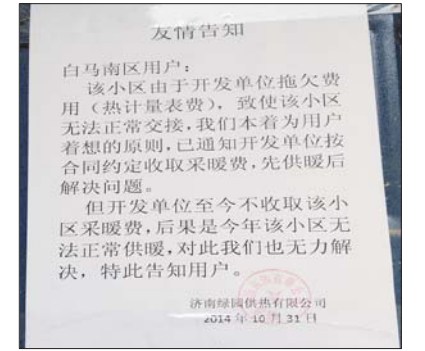 友情告知
白马南区用户：
该小区由于开发单位拖欠费
用（热计量表费），致使该小区
无法正常交接，我们本着为用户
着想的原则，已通知开发单位按
合同约定收取采暖费，先供暖后
解决问题。
但开发单位至今不收取该小
区采暖费，后果是今年该小区无
法正常供暖，对此我们也无力解
决，特此告知用户。
济南绿园供热有限公司
2014 年 10 月 31 日